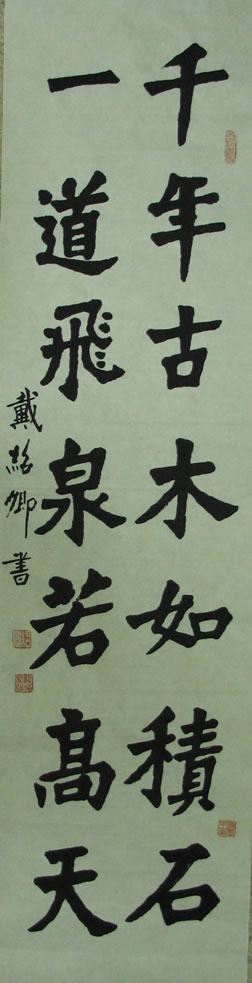 千年古木如積石
一道飛泉若高天
戴紹卿書